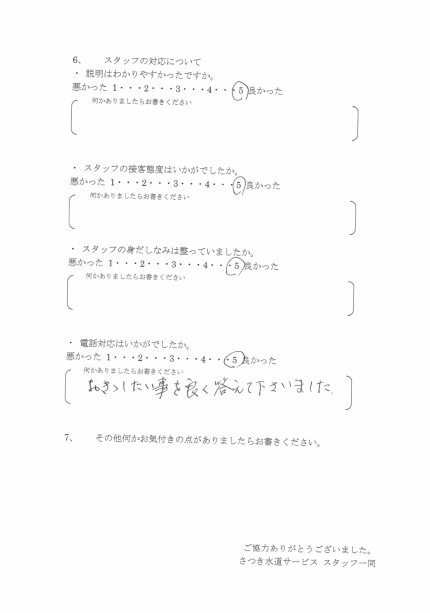 6、 スタッフの対応について
・ 説明はわかりやすかったですか。
悪かった 1・・・2・・・3・・・4・・・5 良かった
何かありましたらお書きください
・ スタッフの接客態度はいかがでしたか。
悪かった 1・・・2・・・3・・・4・・・5 良かった
何かありましたらお書きください
・ スタッフの身だしなみは整っていましたか。
悪かった 1・・・2・・・3・・・4・・・5 良かった
何かありましたらお書きください
・ 電話対応はいかがでしたか。
悪かった 1・・・2・・・3・・・4・・・5 良かった
何かありましたらお書きください
おききしたい事を良く答えて下さいました.
7、 その他何かお気付きの点がありましたらお書きください。
ご協力ありがとうございました。
さつき水道サービス スタッフ一同